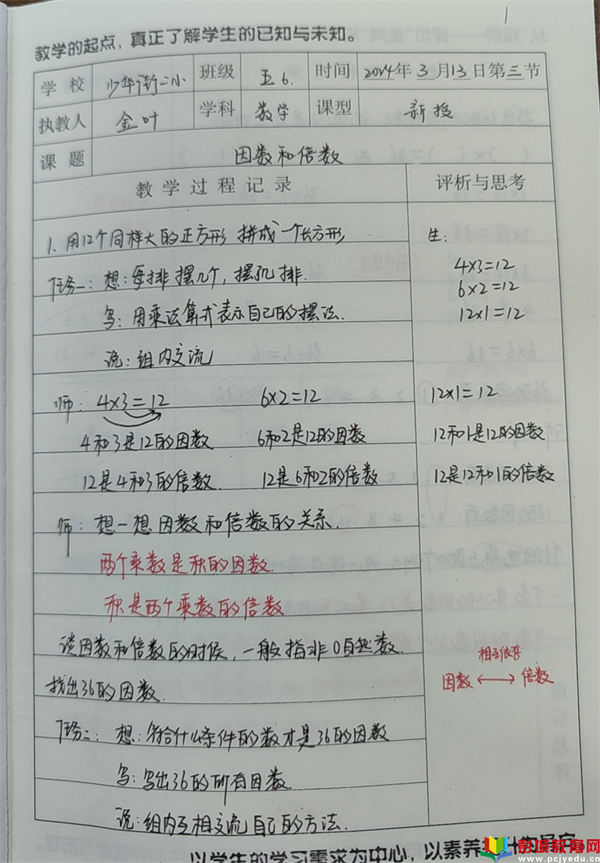 1
教学的起点，真正了解学生的已知与未知。
学校 少年街二小 班级 五6. 时间 2024年3月13日第三节
执教人 金叶 学科 数学 课型 新授
课题 因数和倍数
教学过程记录 评析与思考
1. 用12个同样大的正方形 拼成一个长方形 生:
任务一: 想: 每排摆几个, 摆几排. 4×3=12
6×2=12
写: 用乘法算式表示自己的摆法. 12×1=12
说: 组内交流
师: 4×3=12 6×2=12 12×1=12
4和3是12的因数 6和2是12的因数 12和1是12的因数
12是4和3的倍数 12是6和2的倍数 12是12和1的倍数
师: 想一想因数和倍数的关系.
两个乘数是积的因数.
积是两个乘数的倍数
谈因数和倍数的时候, 一般指非0自然数. 相互依存
找出36的因数. 因数 ⟷ 倍数
任务二: 想: 符合什么条件的数才是36的因数
写: 写出36的所有因数.
说: 组内互相交流自己的方法.
以学生的学习需求为中心，以素养
普洱教育网
www.pcjyedu.cn